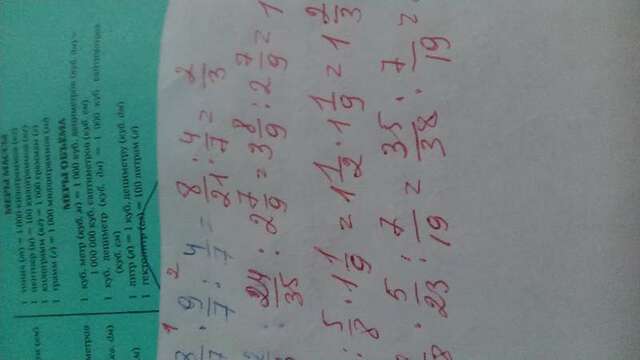 МЕРЫ МАССЫ
1 тонна (т) = 1 000 килограммов (кг)
1 центнер (ц) = 100 килограммов (кг)
1 килограмм (кг) = 1 000 граммам (г)
1 грамм (г) = 1 000 миллиграммов (мг)
МЕРЫ ОБЪЁМА
1 куб. метр (куб. м) = 1 000 куб. дециметров (куб. дм) =
1 000 000 куб. сантиметров (куб. см)
1 куб. дециметр (куб. дм) = 1 000 куб. сантиметров
(куб. см)
1 литр (л) = 1 куб. дециметру (куб. дм)
1 гектолитр (гл) = 100 литрам (л)
1 2
/7 · 9/7 : 4/7 = 8/21 : 4/7 = 2/3
: 24/35 : 2 7/9 = 3 8/9 : 2 7/9 = 1
: 5/8 · 1 1/9 = 1 1/2 · 1 1/9 = 1 2/3
/8 · 5/23 : 7/19 = 35/38 : 7/19 =